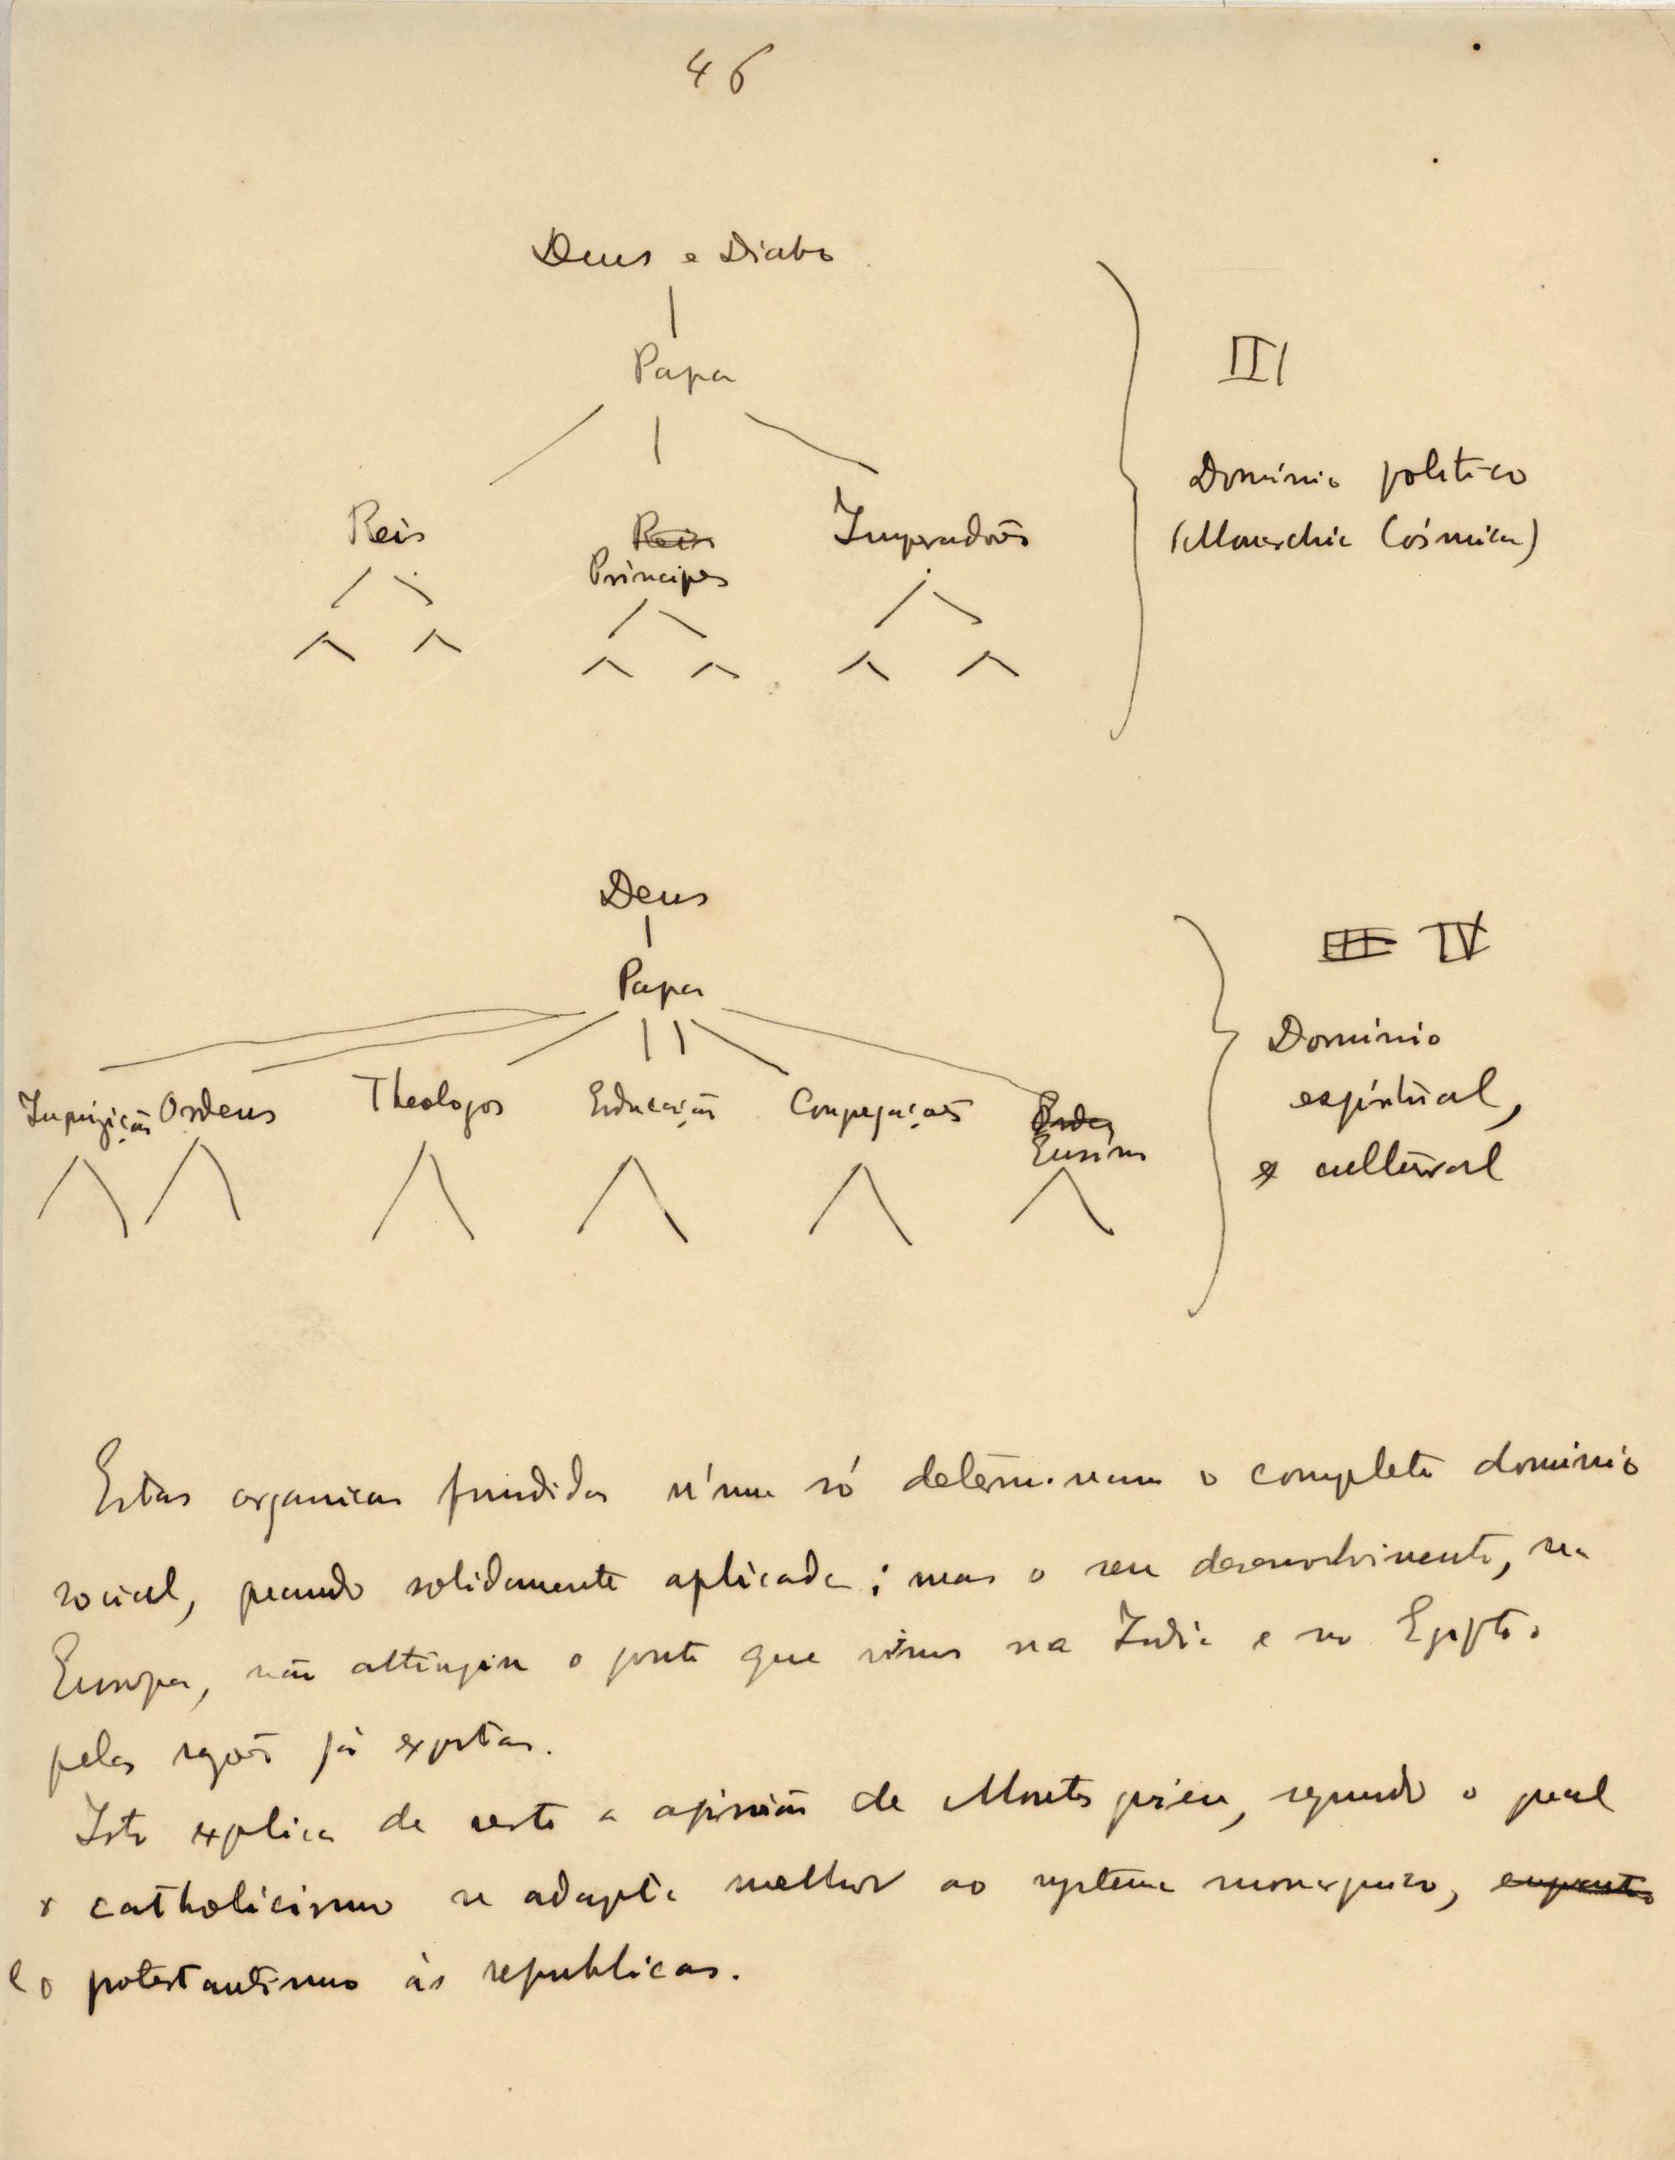 46
Deus e Diabo
Papa
III
Dominio politico
(Monarchia Cósmica)
Reis
Reis
Imperadores
Principes
Deus
III IV
Papa
Dominio
espiritual,
e cultural
Inquizição Ordens Theologos Educação Congregações Ordes
Ensino
Estas organicas fundidas n'uma só determinam o completo dominio
social, quando solidamente aplicada; mas o seu desenvolvimento, na
Europa, não attingiu o ponto que vimos na India e no Egypto
pelas razões já expostas.
Isto explica de resto a opinião de Montesquieu, segundo o qual
o catholicismo se adapta melhor ao systema monarquico, emquanto
e o protestantismo ás republicas.